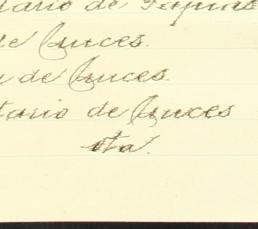 tario de Tapias
de Cruces.
a de Cruces.
tario de Cruces
ota.